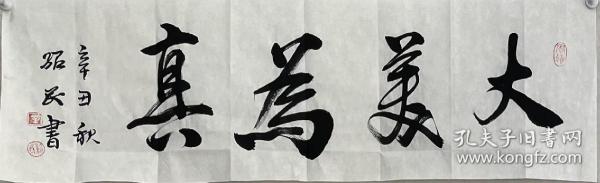 大美為真
辛丑秋
紹文書
孔夫子旧书网
www.kongfz.com